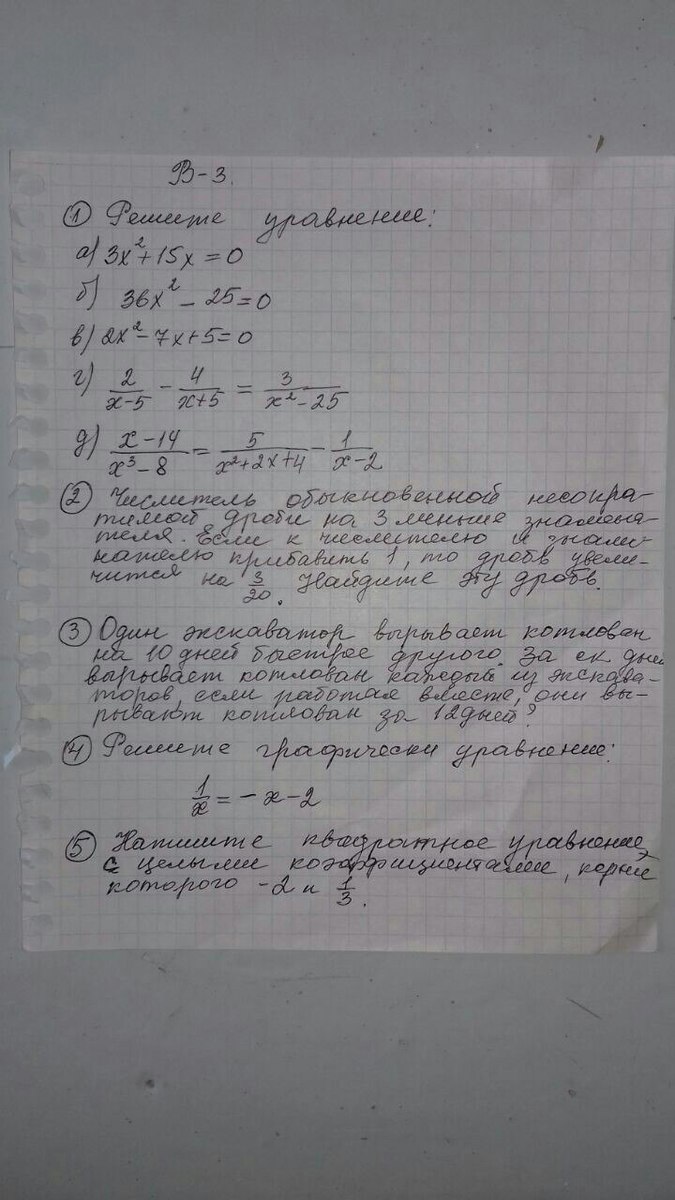 В-3.
① Решите уравнение:
а) 3x²+15x=0
б) 36x²-25=0
в) 2x²-7x+5=0
г) 2/(x-5) - 4/(x+5) = 3/(x²-25)
д) (x-14)/(x³-8) = 5/(x²+2x+4) - 1/(x-2)
② Числитель обыкновенной несокра-
тимой дроби на 3 меньше знамена-
теля. Если к числителю и знаме-
нателю прибавить 1, то дробь увели-
чится на 3/20. Найдите эту дробь.
③ Один экскаватор вырывает котлован
на 10 дней быстрее другого. За ск. дней
вырывает котлован каждый из экскава-
торов, если работая вместе, они вы-
рывают котлован за 12 дней?
④ Решите графически уравнение:
1/x = -x-2
⑤ Напишите квадратное уравнение
с целыми коэффициентами, корни
которого -2 и 1/3.